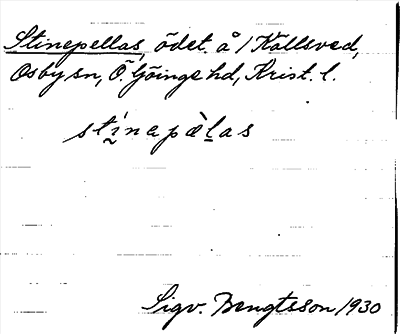 Stinepellas, ödet. å 1 Källsved,
Osby sn, Ö. Göinge hd, Krist. l.
stínapàlas
Sigv. Bengtsson 1930